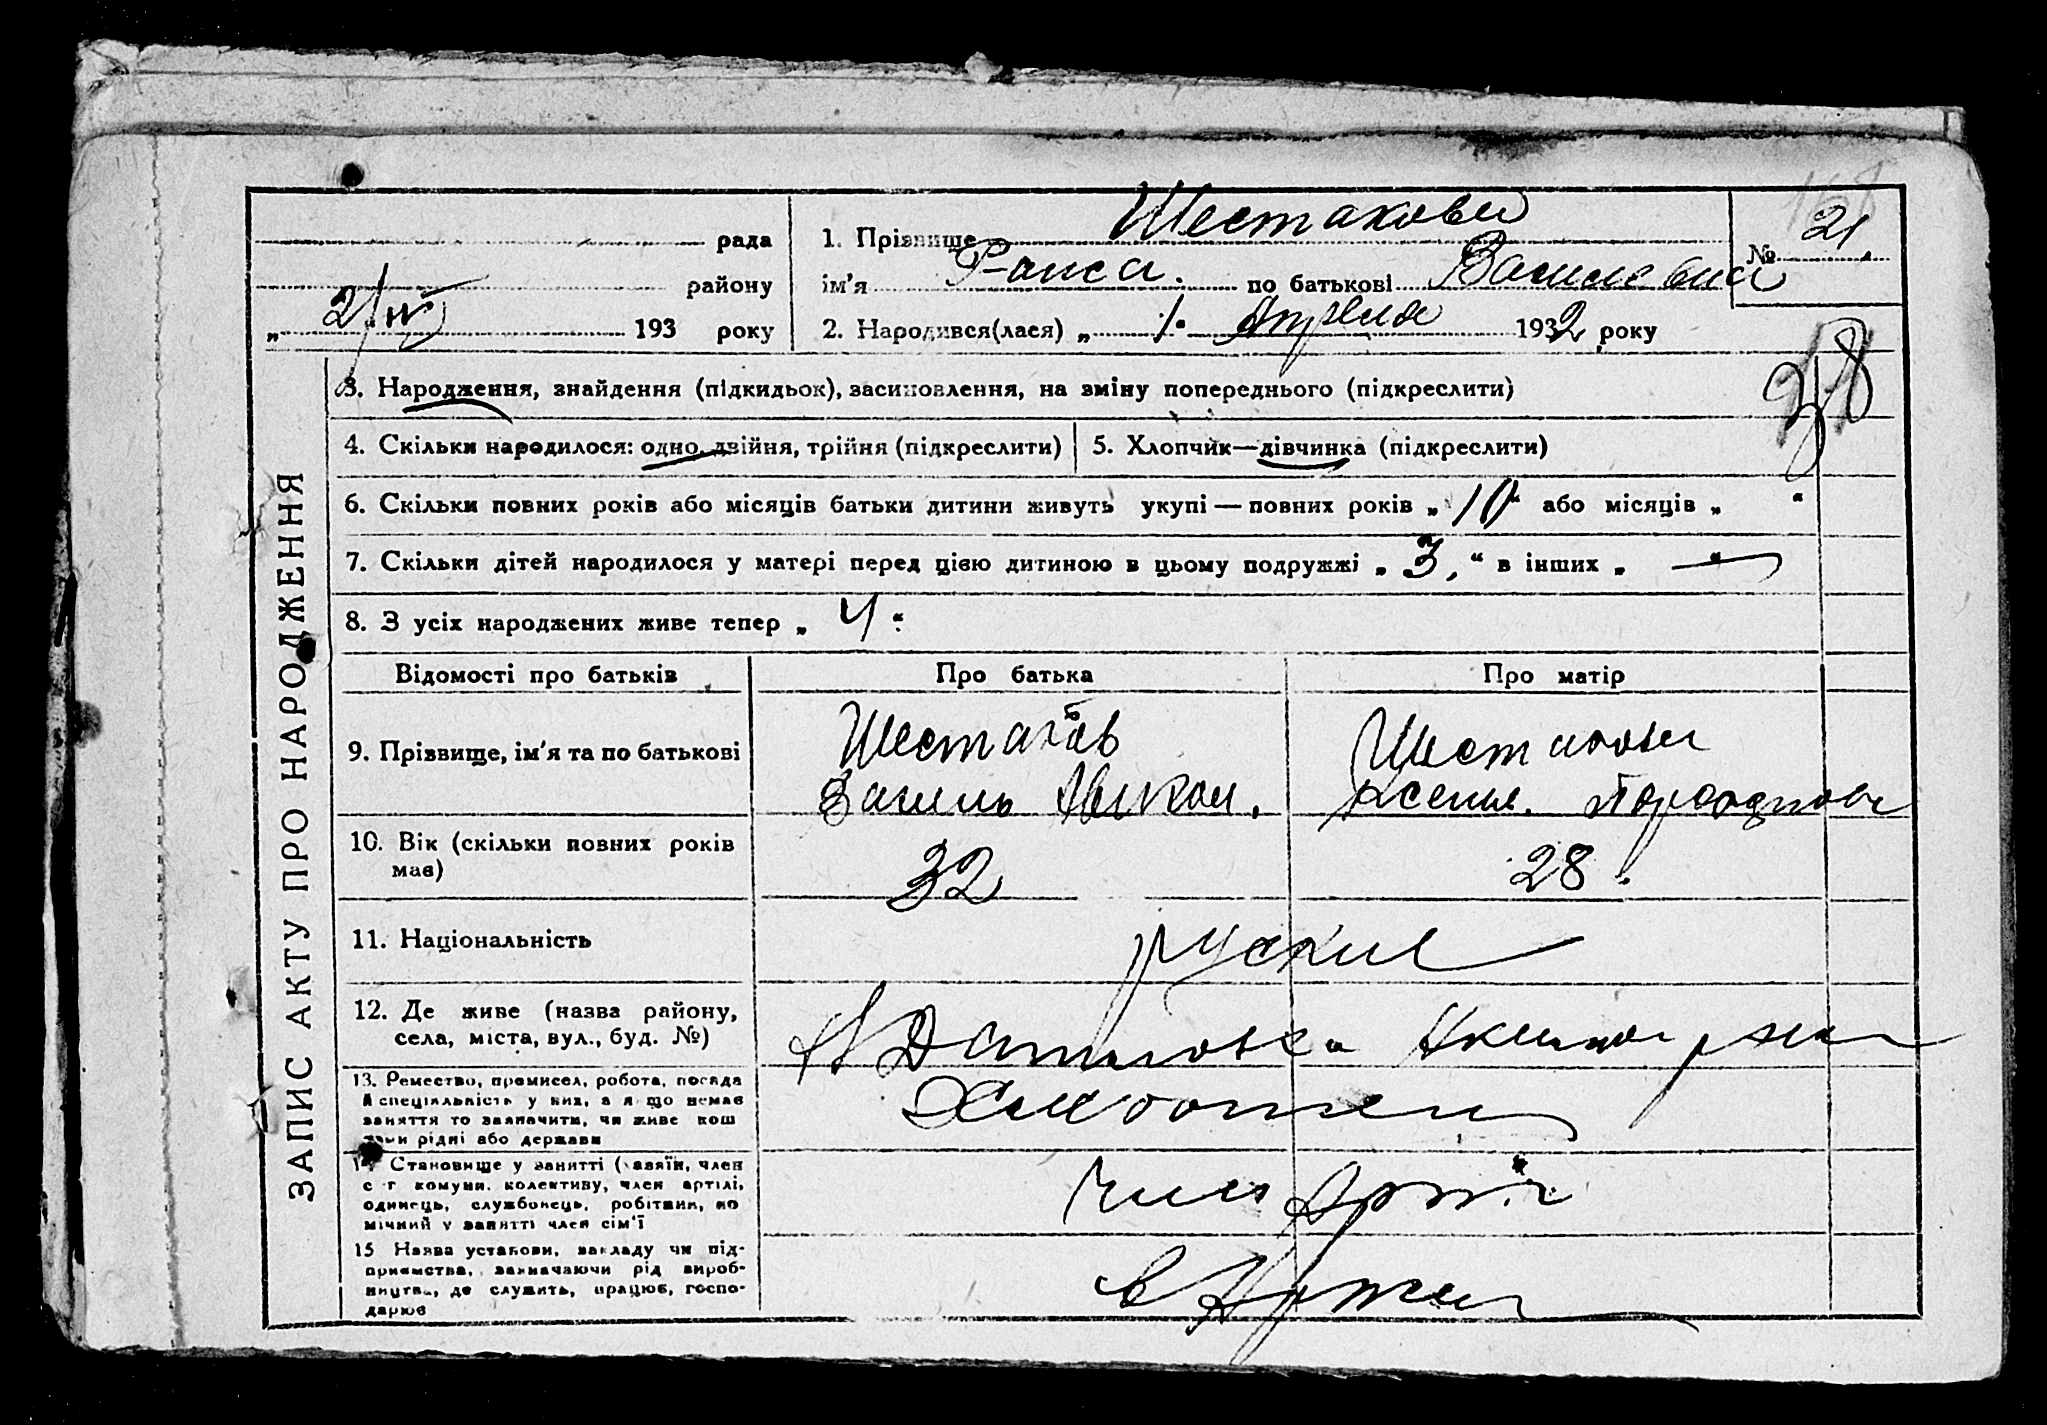 ЗАПИС АКТУ ПРО НАРОДЖЕННЯ
рада
району
„ 2/IV 193 року
1. Прізвище Шестакова
ім'я Раиса. по батькові Васильевна
№ 21
2. Народився(лася) „ 1 Апреля 1932 року
3. Народження, знайдення (підкидьок), засиновлення, на зміну попереднього (підкреслити)
4. Скільки народилося: одно, двійня, трійня (підкреслити) 5. Хлопчик—дівчинка (підкреслити)
6. Скільки повних років або місяців батьки дитини живуть укупі — повних років „ 10 “ або місяців „ “
7. Скільки дітей народилося у матері перед цією дитиною в цьому подружжі „ 3, “ в інших „ — “
8. З усіх народжених живе тепер „ 4 “
Відомості про батьків Про батька Про матір
9. Прізвище, ім'я та по батькові
Шестаков
Василь
Шестакова
Ксения.
10. Вік (скільки повних років має)
32 28.
11. Національність
руские
12. Де живе (назва району,
села, міста, вул., буд. №)
Даниловка
13. Ремество, промисел, робота, посада
й спеціяльність у них, а якщо немає
заняття то зазначити, чи живе кош
тами рідні або держави
14. Становище у занятті (хазяїн, член
с-г комуни, колективу, член артілі,
одинець, службовець, робітник, по
мічний у занятті член сім'ї
член Арт.
15 Назва установи, закладу чи під-
приємства, зазначаючи рід вироб-
ництва, де служить, працює, госпо-
дарює
в Артели